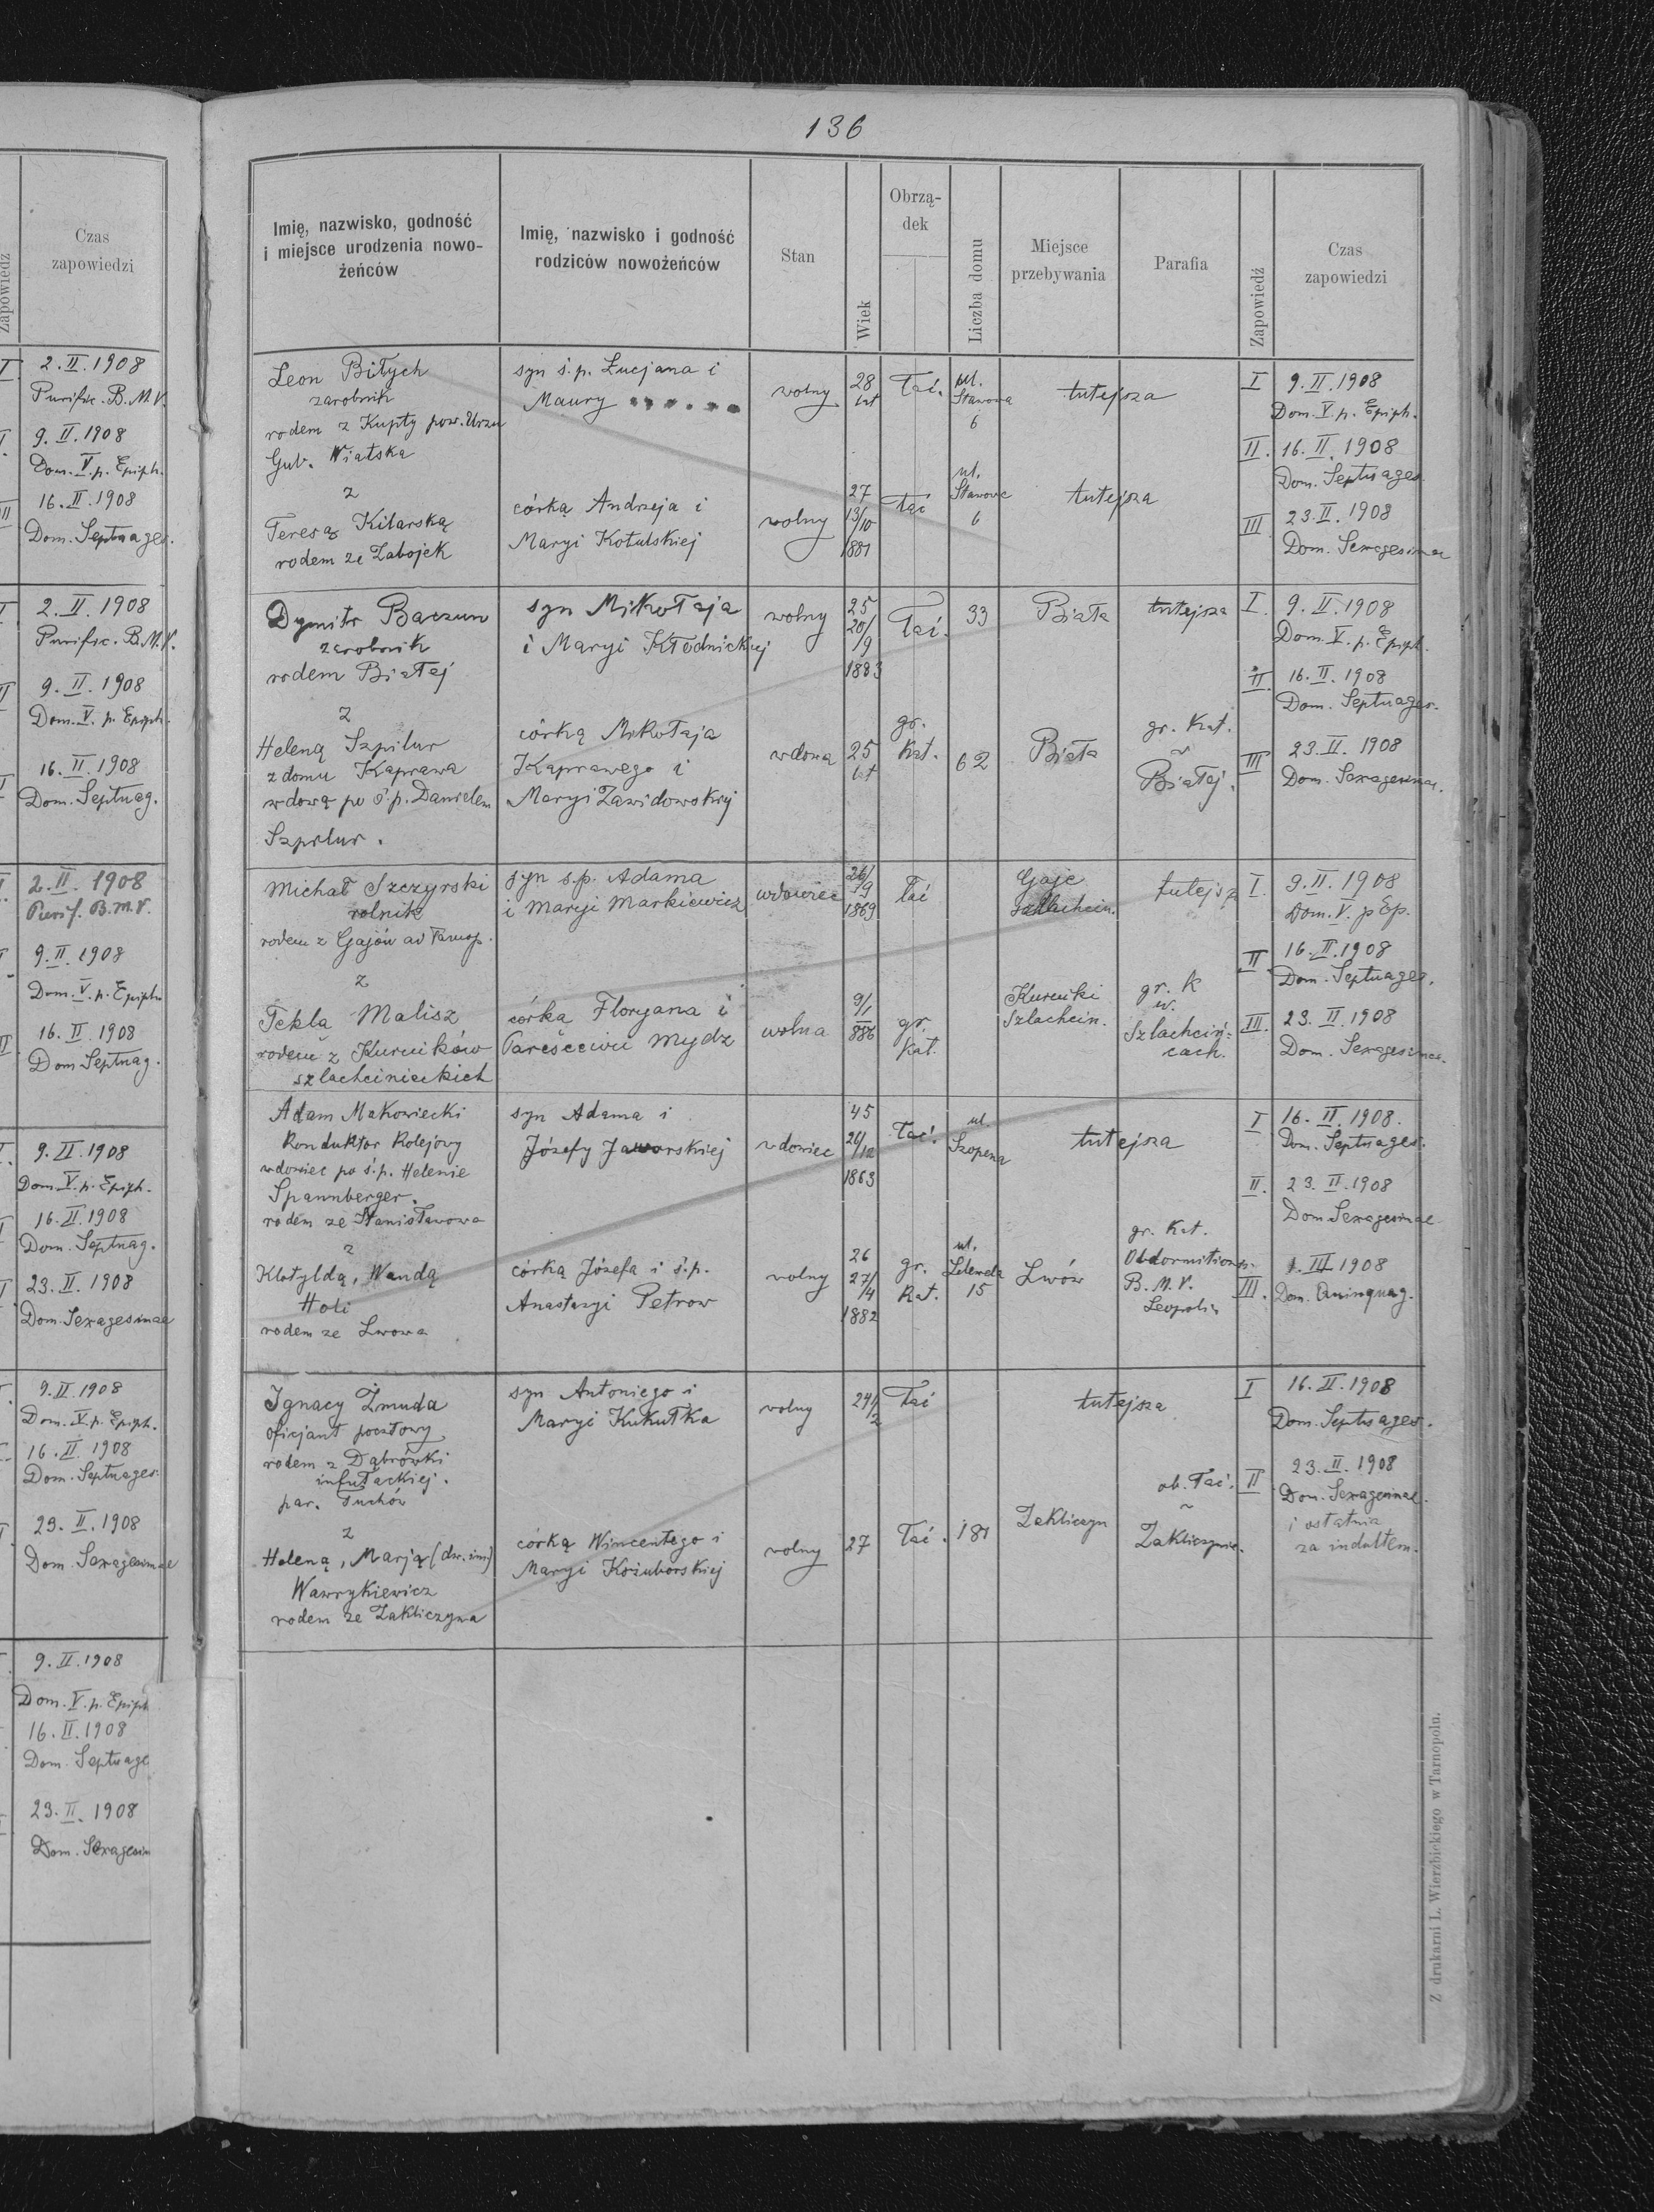 Zapowiedź
Czas
zapowiedzi
I 2.II.1908
Purific. B.M.V.
9.II.1908
Dom. V.p. Epiph.
III 16.II.1908
Dom. Septuages.
I 2.II.1908
Purific. B.M.V.
II 9.II.1908
Dom. V. p. Epiph.
16.II.1908
Dom. Septuag.
2.II.1908
Purif. B.M.V.
9.II.1908
Dom. V.p. Epiph
16.II.1908
Dom Septuag.
9.II.1908
Dom. V.p. Epiph.
16.II.1908
Dom. Septuag.
23.II.1908
Dom. Sexagesimae
9.II.1908
Dom. V.p. Epiph.
16.II.1908
Dom. Septuages.
23.II.1908
Dom. Sexagesimae
9.II.1908
Dom. V.p. Epiph
16.II.1908
Dom. Septuage
23.II.1908
Dom. Sexagesim
136
Imię, nazwisko, godność
i miejsce urodzenia nowo-
żeńców
Imię, nazwisko i godność
rodziców nowożeńców
Stan
Wiek
Obrzą-
dek
Liczba domu
Miejsce
przebywania
Parafia
Zapowiedź
Czas
zapowiedzi
Leon Biłych
zarobnik
rodem z Kupty pow. Urzu
Gub. Wiatska
syn ś.p. Łucjana i
Maury
wolny
28
lat
łać.
ul.
Stawowa
6
tutejsza
I 9.II.1908
Dom. V.p. Epiph.
II. 16.II.1908
Dom. Septuages.
III 23.II.1908
Dom. Sexagesimae
z
Teresą Kilarską
rodem ze Zabojek
córką Andrzeja i
Maryi Kotulskiej
wolny
27
13/10
1881
łać
ul.
Stawowa
6
tutejsza
Dymitr Baczun
zarobnik
rodem Białej
syn Mikołaja
i Maryi Kłodnickiej
wolny
25
20/
/9
1883
łać.
33
Biała
tutejsza
I. 9.II.1908
Dom. V. p. Epiph.
II. 16.II.1908
Dom. Septuages.
III 23.II.1908
Dom. Sexagesimae.
z
Heleną Szpilur
z domu Kaprawa
wdową po ś.p. Danielem
Szpilur.
córką Mikołaja
Kaprawego i
Maryi Zawidowskiej
wdowa
25
lat
gr.
Kat.
62
Biała
gr. Kat.
w
Białej.
Michał Szczyrski
rolnik
rodem z Gajów ad Tarnop.
syn ś.p. Adama
i Maryi Markiewicz
wdowiec
26/
/9
1869
łać
Gaje
szlachcin.
tutejsz
I. 9.II.1908
Dom. V. p Ep.
II 16.II.1908
Dom. Septuages.
III. 23.II.1908
Dom. Sexagesimae.
z
Tekla Malisz
rodem z Kurników
szlachcinieckich
córka Floryana i
Paresceivii Mydz
wolna
9/
I
886
gr.
Kat.
Kurniki
Szlachcin.
gr. k
w.
Szlachciń-
cach.
Adam Makowiecki
Konduktor Kolejowy
wdowiec po ś.p. Helenie
Spannberger.
rodem ze Stanisławowa
syn Adama i
Józefy Jaworskiej
wdowiec
45
26/12
1863
łać.
ul
Szopena
tutejsza
I 16.II.1908.
Dom. Septuages.
II. 23.II.1908
Dom Sexagesimae
III. 1.III.1908
Dom. Quinquag.
z
Klotyldą, Wandą
Holi
rodem ze Lwowa
córką Józefa i ś.p.
Anastazyi Petrow
wolny
26
27/4
1882
gr.
Kat.
ul.
Lelewela
15
Lwów
gr. Kat.
Obdormitionis
B.M.V.
Leopolis
Ignacy Żmuda
oficjant pocztowy
rodem z Dąbrówki
infułackiej.
par. Tuchów
syn Antoniego i
Maryi Kukułka
wolny
24 1/2
łać
tutejsza
I 16.II.1908
Dom. Septuages.
II 23.II.1908
Dom. Sexagesimae.
i ostatnia
za indultem.
z
Heleną, Marją (dw. im)
Wawrykiewicz
rodem ze Zakliczyna
córką Wincentego i
Maryi Koziuborskiej
wolny
27
łać.
181
Zakliczyn
ob. łać.
w
Zakliczynie.
Z drukarni L. Wierzbickiego w Tarnopolu.